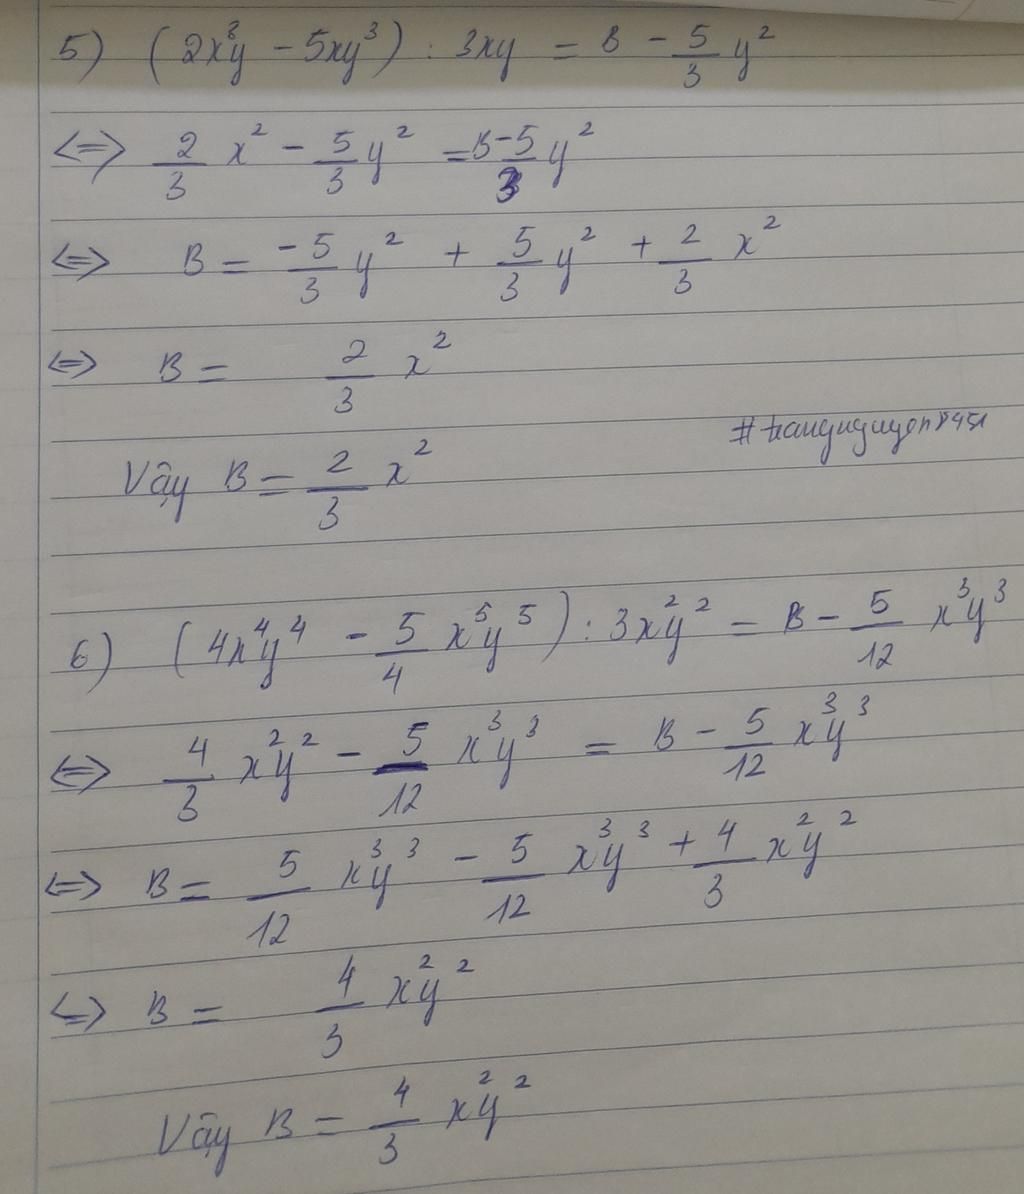 5) (2x³y - 5xy³) : 3xy = B - 5/3 y²
<=> 2/3 x² - 5/3 y² = B - 5/3 y²
<=> B = -5/3 y² + 5/3 y² + 2/3 x²
<=> B = 2/3 x²
#trangnguyen8451
Vậy B = 2/3 x²
6) (4x⁴y⁴ - 5/4 x⁵y⁵) : 3x²y² = B - 5/12 x³y³
<=> 4/3 x²y² - 5/12 x³y³ = B - 5/12 x³y³
<=> B = 5/12 x³y³ - 5/12 x³y³ + 4/3 x²y²
<=> B = 4/3 x²y²
Vậy B = 4/3 x²y²